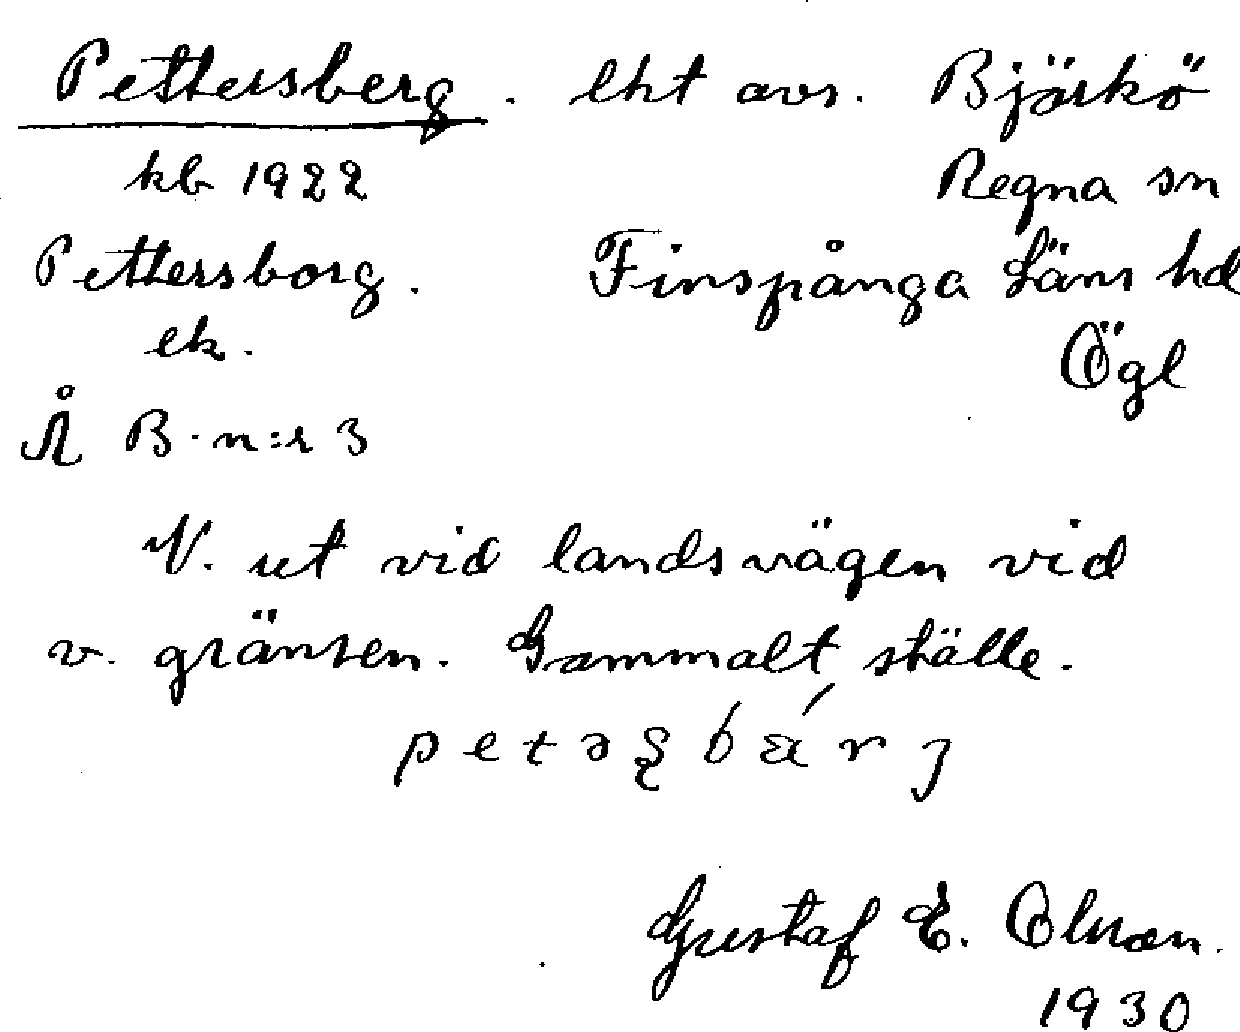 Pettersberg. lht avs. Björkö
kb 1922 Regna sn
Pettersborg. Finspånga Läns hd
ek. Ögl
Å B. n:r 3
V. ut vid landsvägen vid
v. gränsen. Gammalt ställe.
Gustaf E. Olsson.
1930